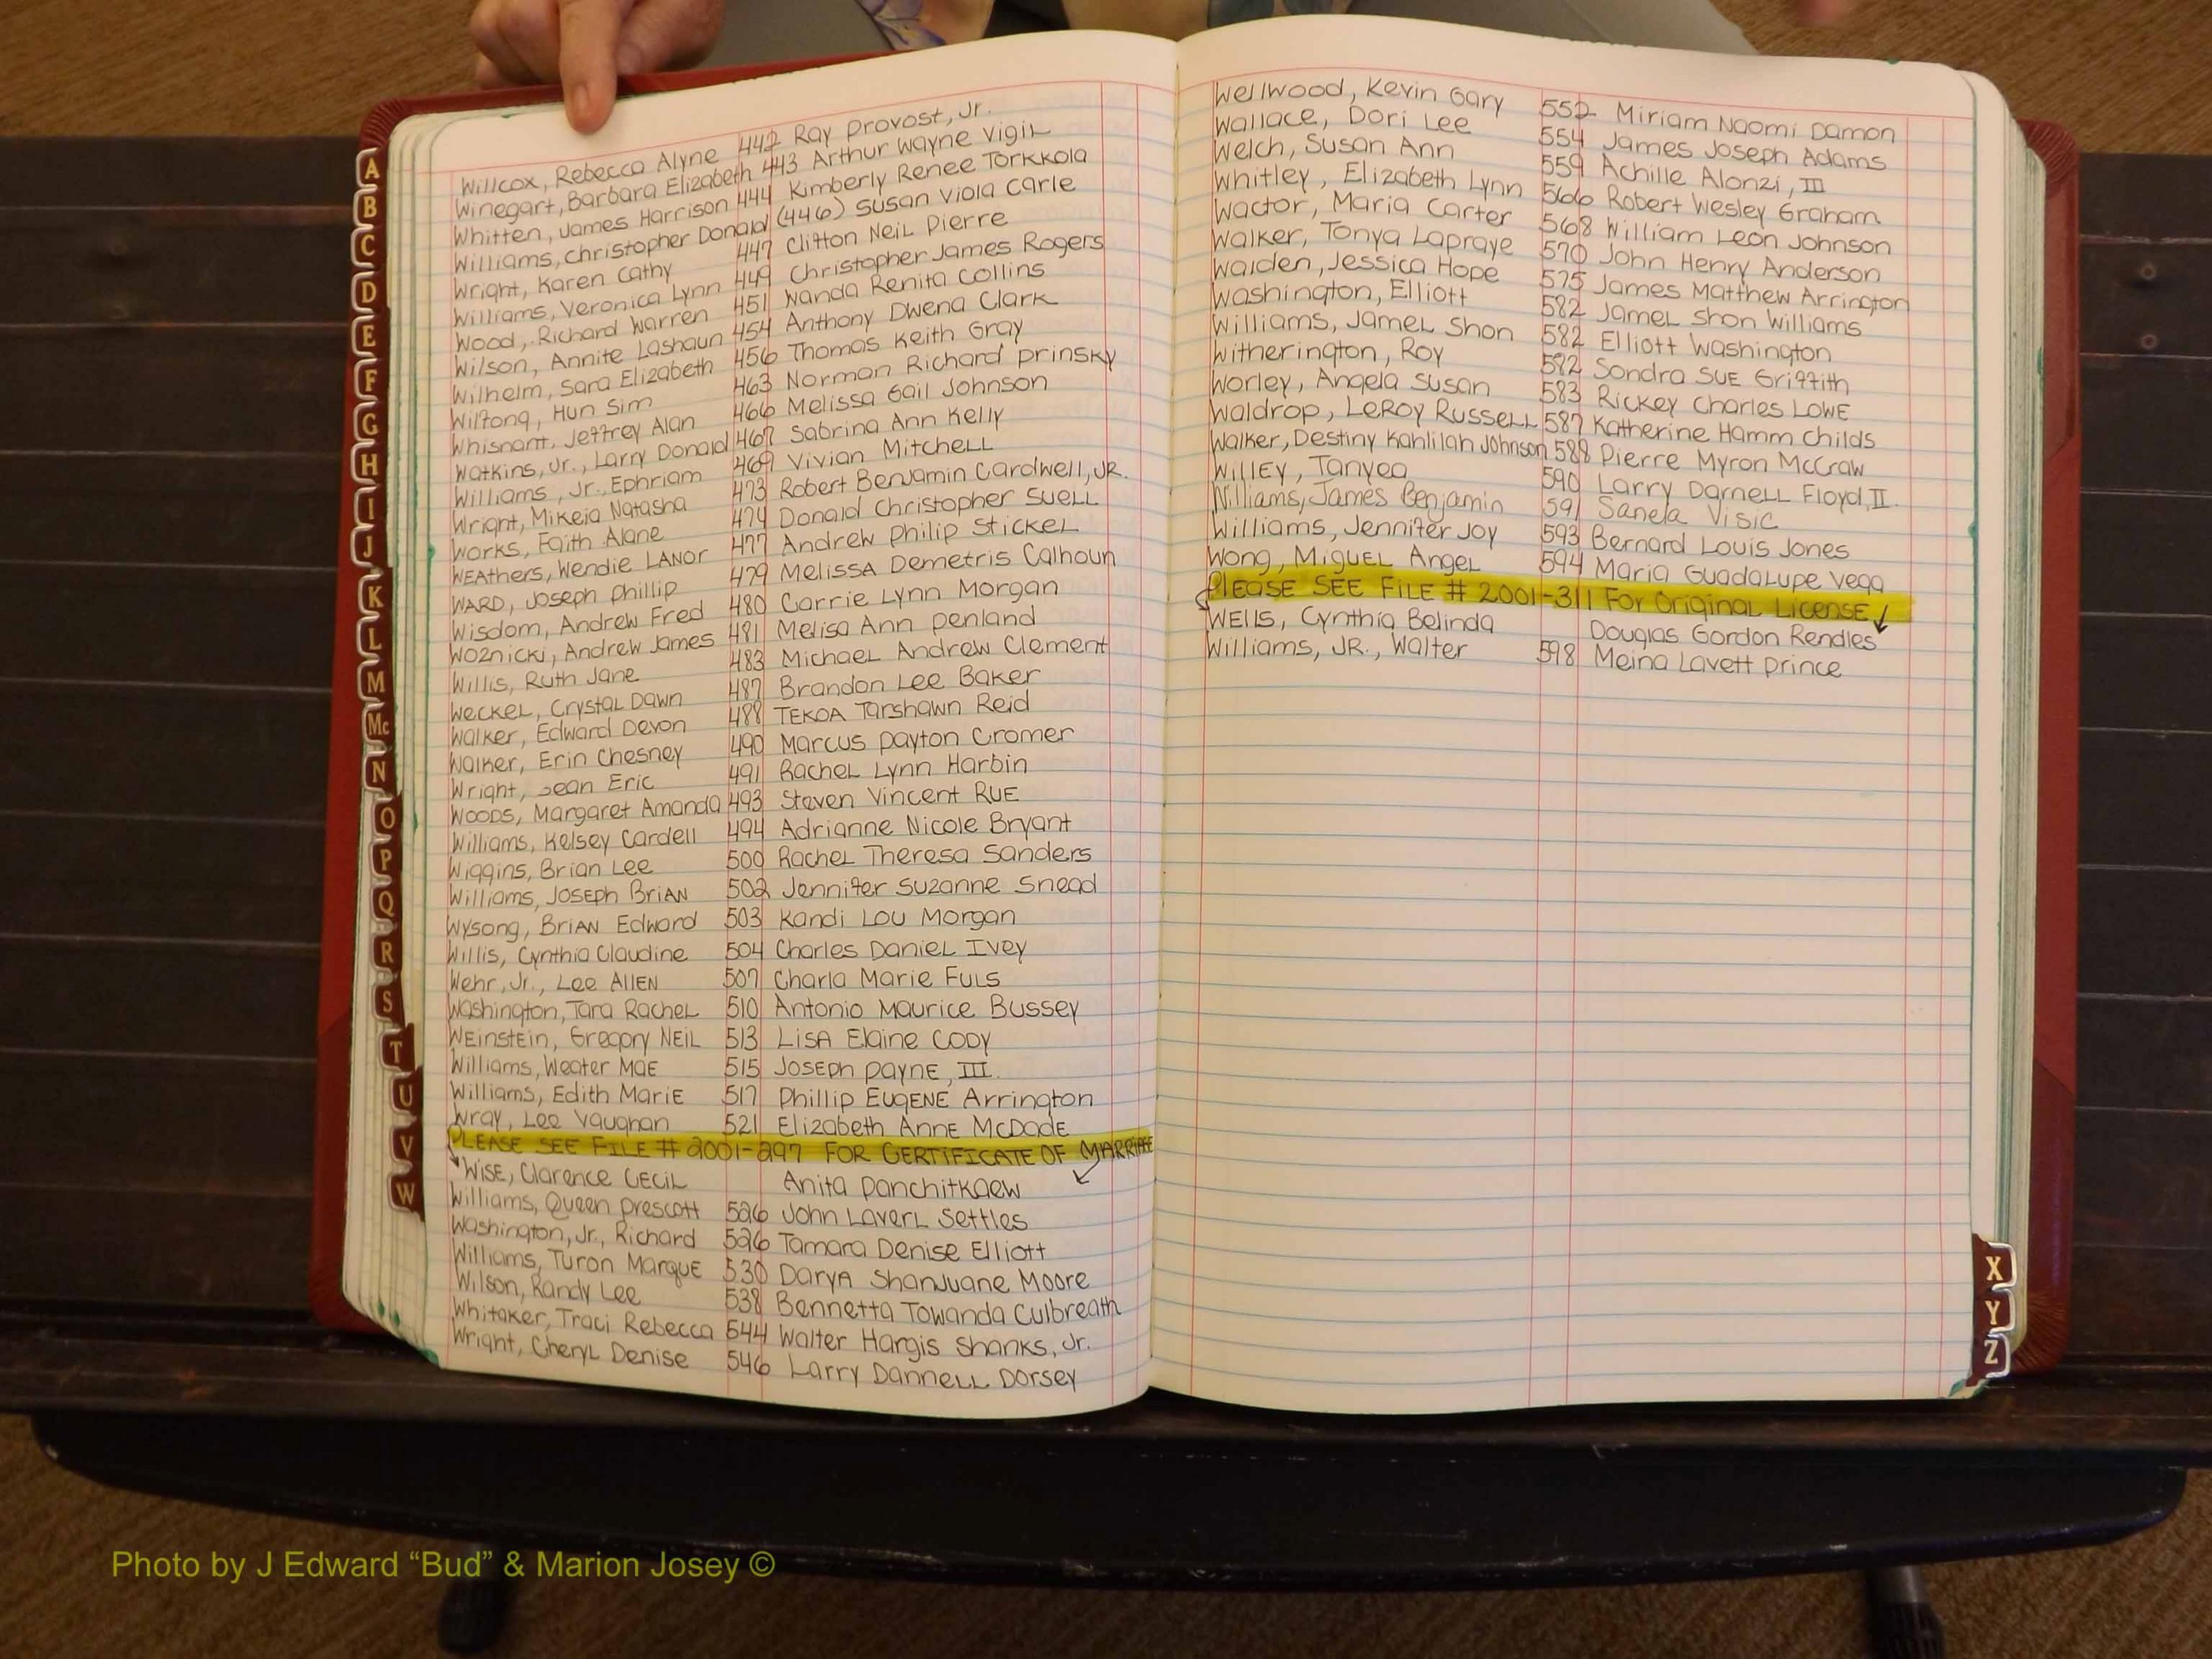 Willcox, Rebecca Alyne 442 Ray Provost, Jr.
Winegart, Barbara Elizabeth 443 Arthur Wayne Vigil
Whitten, James Harrison 444 Kimberly Renee Torkkola
Williams, Christopher Donald (446) Susan Viola Carle
Wright, Karen Cathy 447 Clifton Neil Pierre
Williams, Veronica Lynn 449 Christopher James Rogers
Wood, Richard Warren 451 Wanda Renita Collins
Wilson, Annite Lashaun 454 Anthony Dwena Clark
Wilhelm, Sara Elizabeth 456 Thomas Keith Gray
Wilfong, Hun Sim 463 Norman Richard Prinsky
Whisnant, Jeffrey Alan 466 Melissa Gail Johnson
Watkins, Jr., Larry Donald 467 Sabrina Ann Kelly
Williams, Jr., Ephriam 469 Vivian Mitchell
Wright, Mikeia Natasha 473 Robert Benjamin Cardwell, JR.
Works, Faith Alane 474 Donald Christopher Suell
WEAthers, Wendie LANOr 477 Andrew Philip Stickel
WARD, Joseph Phillip 479 MelissA Demetris Calhoun
Wisdom, Andrew Fred 480 Carrie Lynn Morgan
Woznicki, Andrew James 481 Melisa Ann Penland
Willis, Ruth Jane 483 Michael Andrew Clement
Weckel, Crystal Dawn 487 Brandon Lee Baker
Walker, Edward Devon 488 TEKOA Tarshawn Reid
Walker, Erin Chesney 490 Marcus Payton Cromer
Wright, Sean Eric 491 Rachel Lynn Harbin
Woods, Margaret Amanda 493 Steven Vincent RUE
Williams, Kelsey Cardell 494 Adrianne Nicole Bryant
Wiggins, Brian Lee 500 Rachel Theresa Sanders
Williams, Joseph BriAN 502 Jennifer Suzanne Snead
Wysong, BriAN Edward 503 Kandi Lou Morgan
Willis, Cynthia Claudine 504 Charles Daniel Ivey
Wehr, Jr., Lee AllEN 507 Charla Marie Fuls
Washington, Tara Rachel 510 Antonio Maurice Bussey
WEinstEin, Gregory NEIL 513 LisA Elaine Cody
Williams, Weater MaE 515 Joseph Payne, III.
Williams, Edith MariE 517 Phillip EUGENE Arrington
Wray, Lee Vaughan 521 Elizabeth Anne McDade
PLEASE SEE FILE # 2001-297 FOR CERTIFICATE OF MARRIAGE
WISE, Clarence CECIL Anita Panchitkaew
Williams, Queen Prescott 526 John Laverl Settles
Washington, Jr., Richard 526 Tamara Denise Elliott
Williams, Turon Marque 530 DaryA ShanJuane Moore
Wilson, Randy Lee 538 Bennetta Towanda Culbreath
Whitaker, Traci Rebecca 544 Walter Hargis Shanks, Jr.
Wright, Cheryl Denise 546 Larry Dannell Dorsey
Wellwood, Kevin Gary 552 Miriam Naomi Damon
Wallace, Dori Lee 554 James Joseph Adams
Welch, Susan Ann 559 Achille Alonzi, III
Whitley, Elizabeth Lynn 566 Robert Wesley Graham
Wactor, Maria Carter 568 William Leon Johnson
Walker, Tonya Lapraye 570 John Henry Anderson
Walden, Jessica Hope 575 James Matthew Arrington
Washington, Elliott 582 Jamel Shon Williams
Williams, Jamel Shon 582 Elliott Washington
Witherington, Roy 582 Sondra SUE Griffith
Worley, Angela Susan 583 Rickey Charles LOWE
Waldrop, LeRoy Russell 587 Katherine Hamm Childs
Walker, Destiny Kahlilah Johnson 588 Pierre Myron McCraw
WillEy, Tanyea 590 Larry Darnell Floyd, II.
Williams, James Benjamin 591 Sanela Visic
Williams, Jennifer Joy 593 Bernard Louis Jones
Wong, Miguel Angel 594 Maria Guadalupe Vega
PLEASE SEE FILE # 2001-311 For Original License
WElls, Cynthia Belinda Douglas Gordon Rendles
Williams, JR., Walter 598 Meina Lavett Prince
A
B
C
D
E
F
G
H
I
J
K
L
M
Mc
N
O
P
Q
R
S
T
U
V
W
X
Y
Z
Photo by J Edward “Bud” & Marion Josey ©